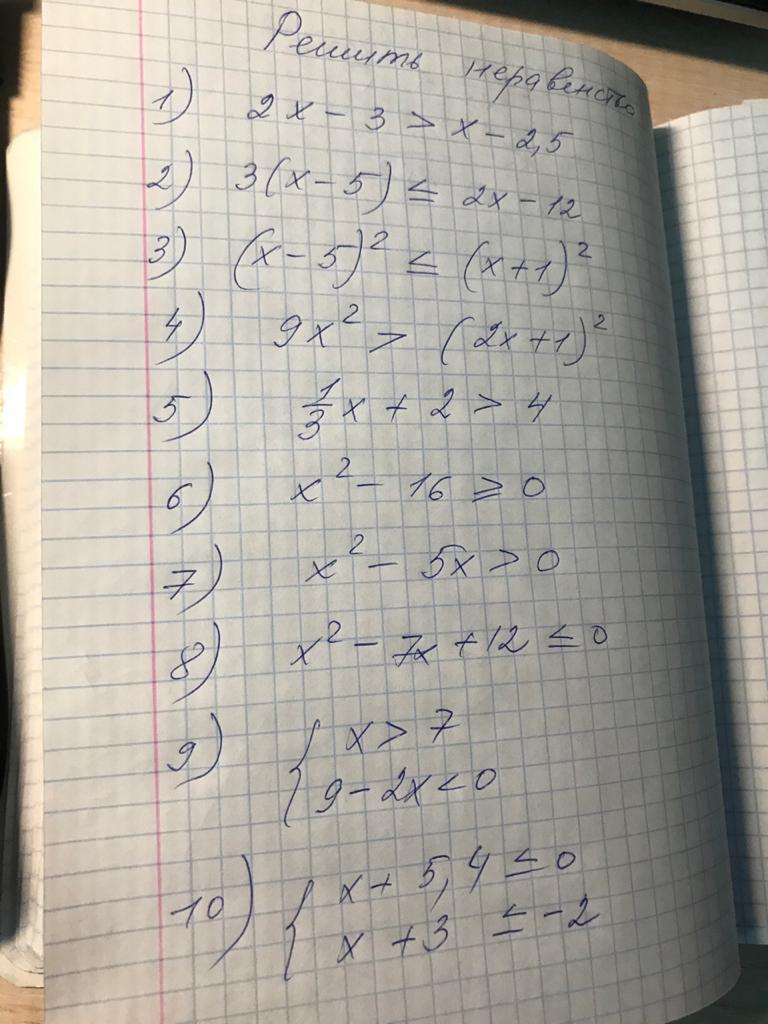 Решить неравенство
1) 2x - 3 > x - 2,5
2) 3(x - 5) ≤ 2x - 12
3) (x - 5)² ≤ (x + 1)²
4) 9x² > (2x + 1)²
5) 1/3 x + 2 > 4
6) x² - 16 ≥ 0
7) x² - 5x > 0
8) x² - 7x + 12 ≤ 0
9) { x > 7
9 - 2x < 0
10) { x + 5,4 ≤ 0
x + 3 ≤ -2